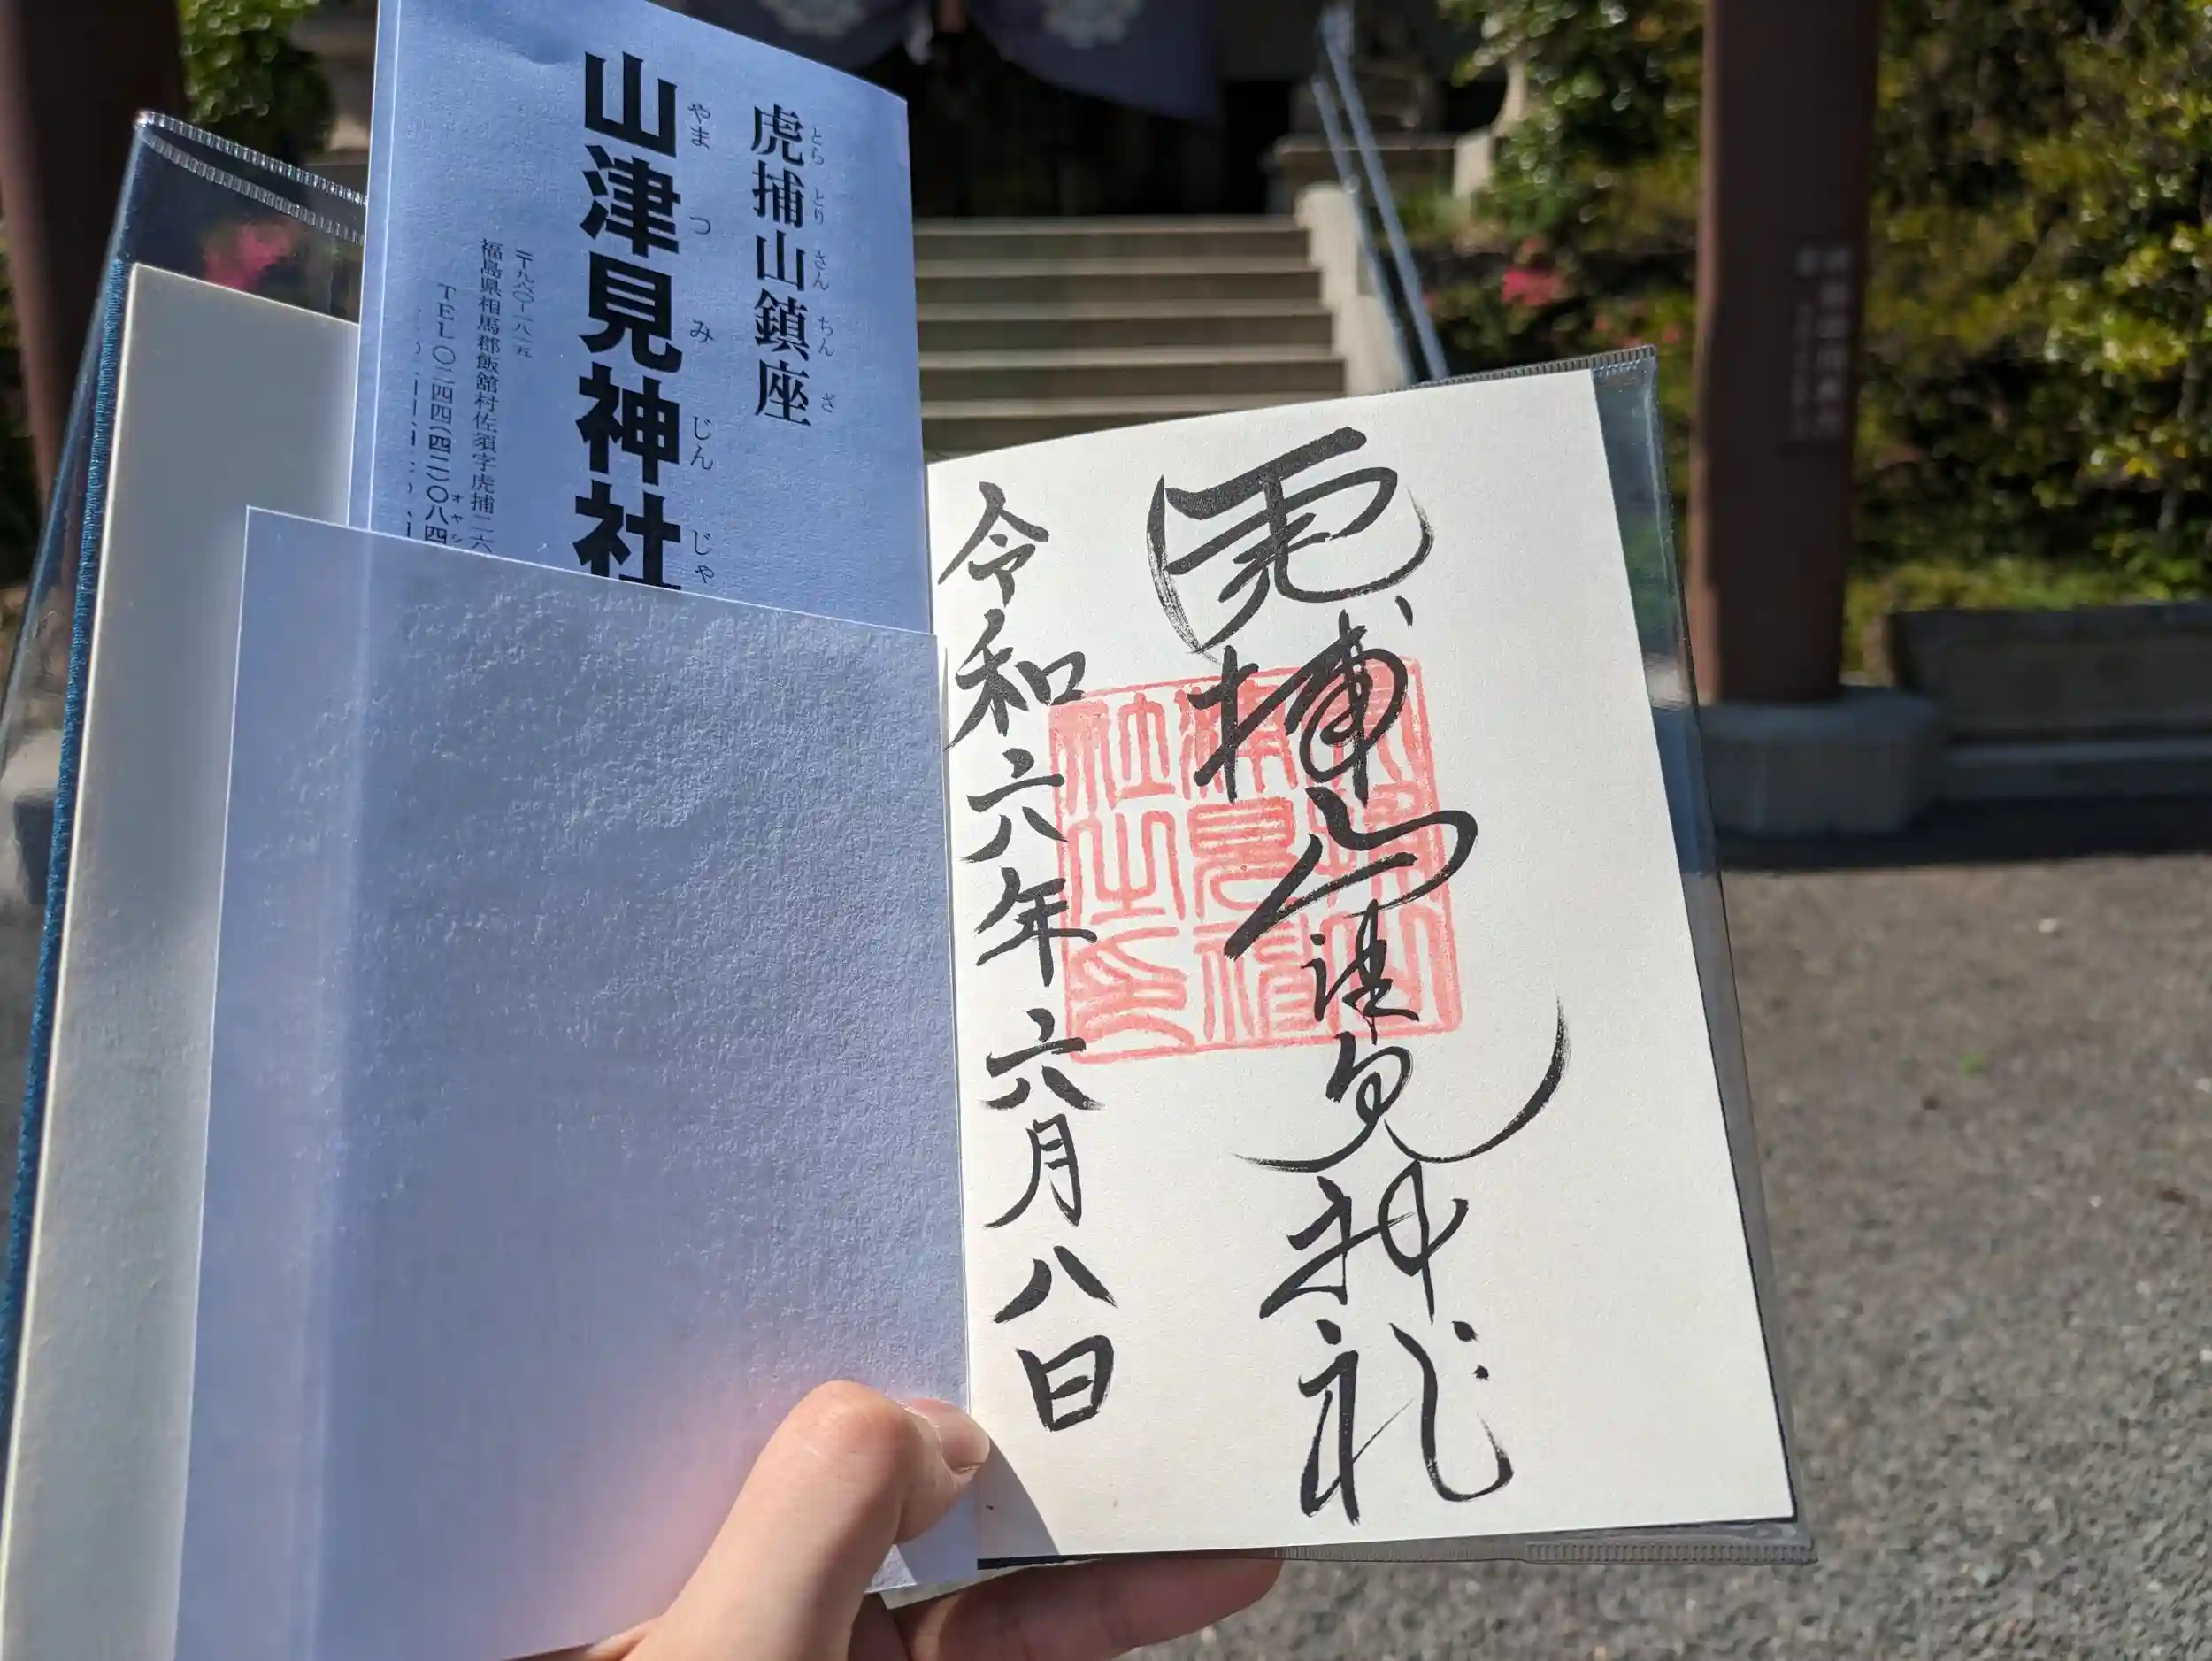 虎捕山鎮座
とらとりさんちんざ
山津見神社
やまつみじんじゃ
〒九六〇-一八一五
福島県相馬郡飯舘村佐須字虎捕二六
TEL〇二四四(四二)〇八四
オヤシ
虎捕山津見神社
令和六年六月八日
虎捕山
津見神
社之印